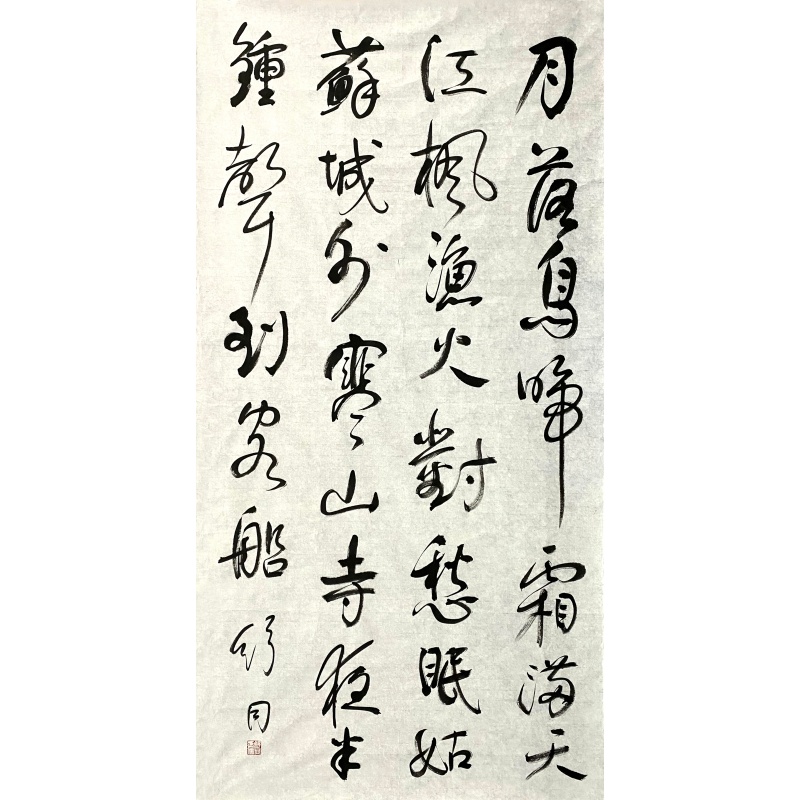 月落烏啼霜滿天
江楓漁火對愁眠姑
蘇城外寒山寺夜半
鍾聲到客船
舒同